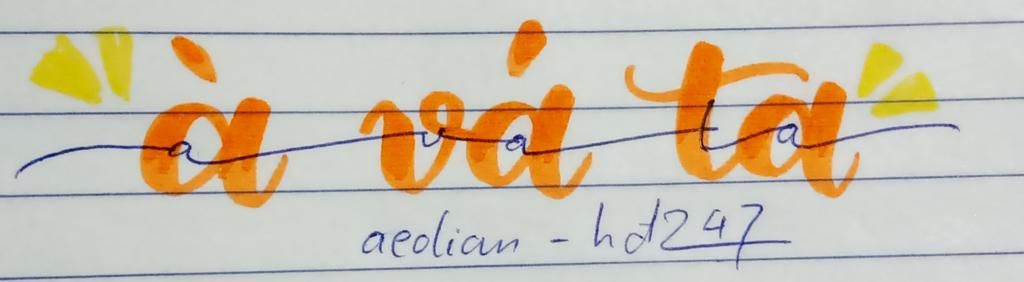 à vá ta
a v a t a
aeolian - hd247